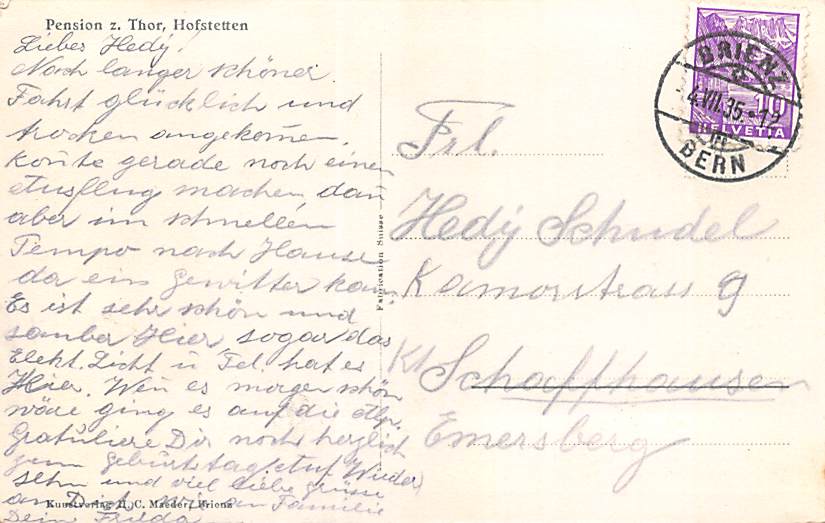 Pension z. Thor, Hofstetten
Liebes Hedÿ!
Nach langer schöner
Fahrt glücklich und
trocken angekom̄en,
kon̄te gerade noch einen
Ausflug machen dan̄
aber im schnellen
Tempo nach Hause
da ein Gewitter kam.
Es ist sehr schön und
sauber Hier, sogar das
Elekt. Licht u Tel. hat es
Hier. Wen̄ es morgen schön
wäre ging es auf die Alp.
Gratŭliere Dir noch herzlich
zum Geburtstag. Auf Wieder
sehn und viel liebe Grüsse
an Dich wie an Familie
Dein Frieda
Kunstverlag H. C. Maeder, Brienz
Fabrication Suisse
BRIENZ
4.VII.35.-12
BERN
10
HELVETIA
Frl.
Hedÿ Schudel
Kamorstrass 9
Kt Schaffhausen
Emersberg